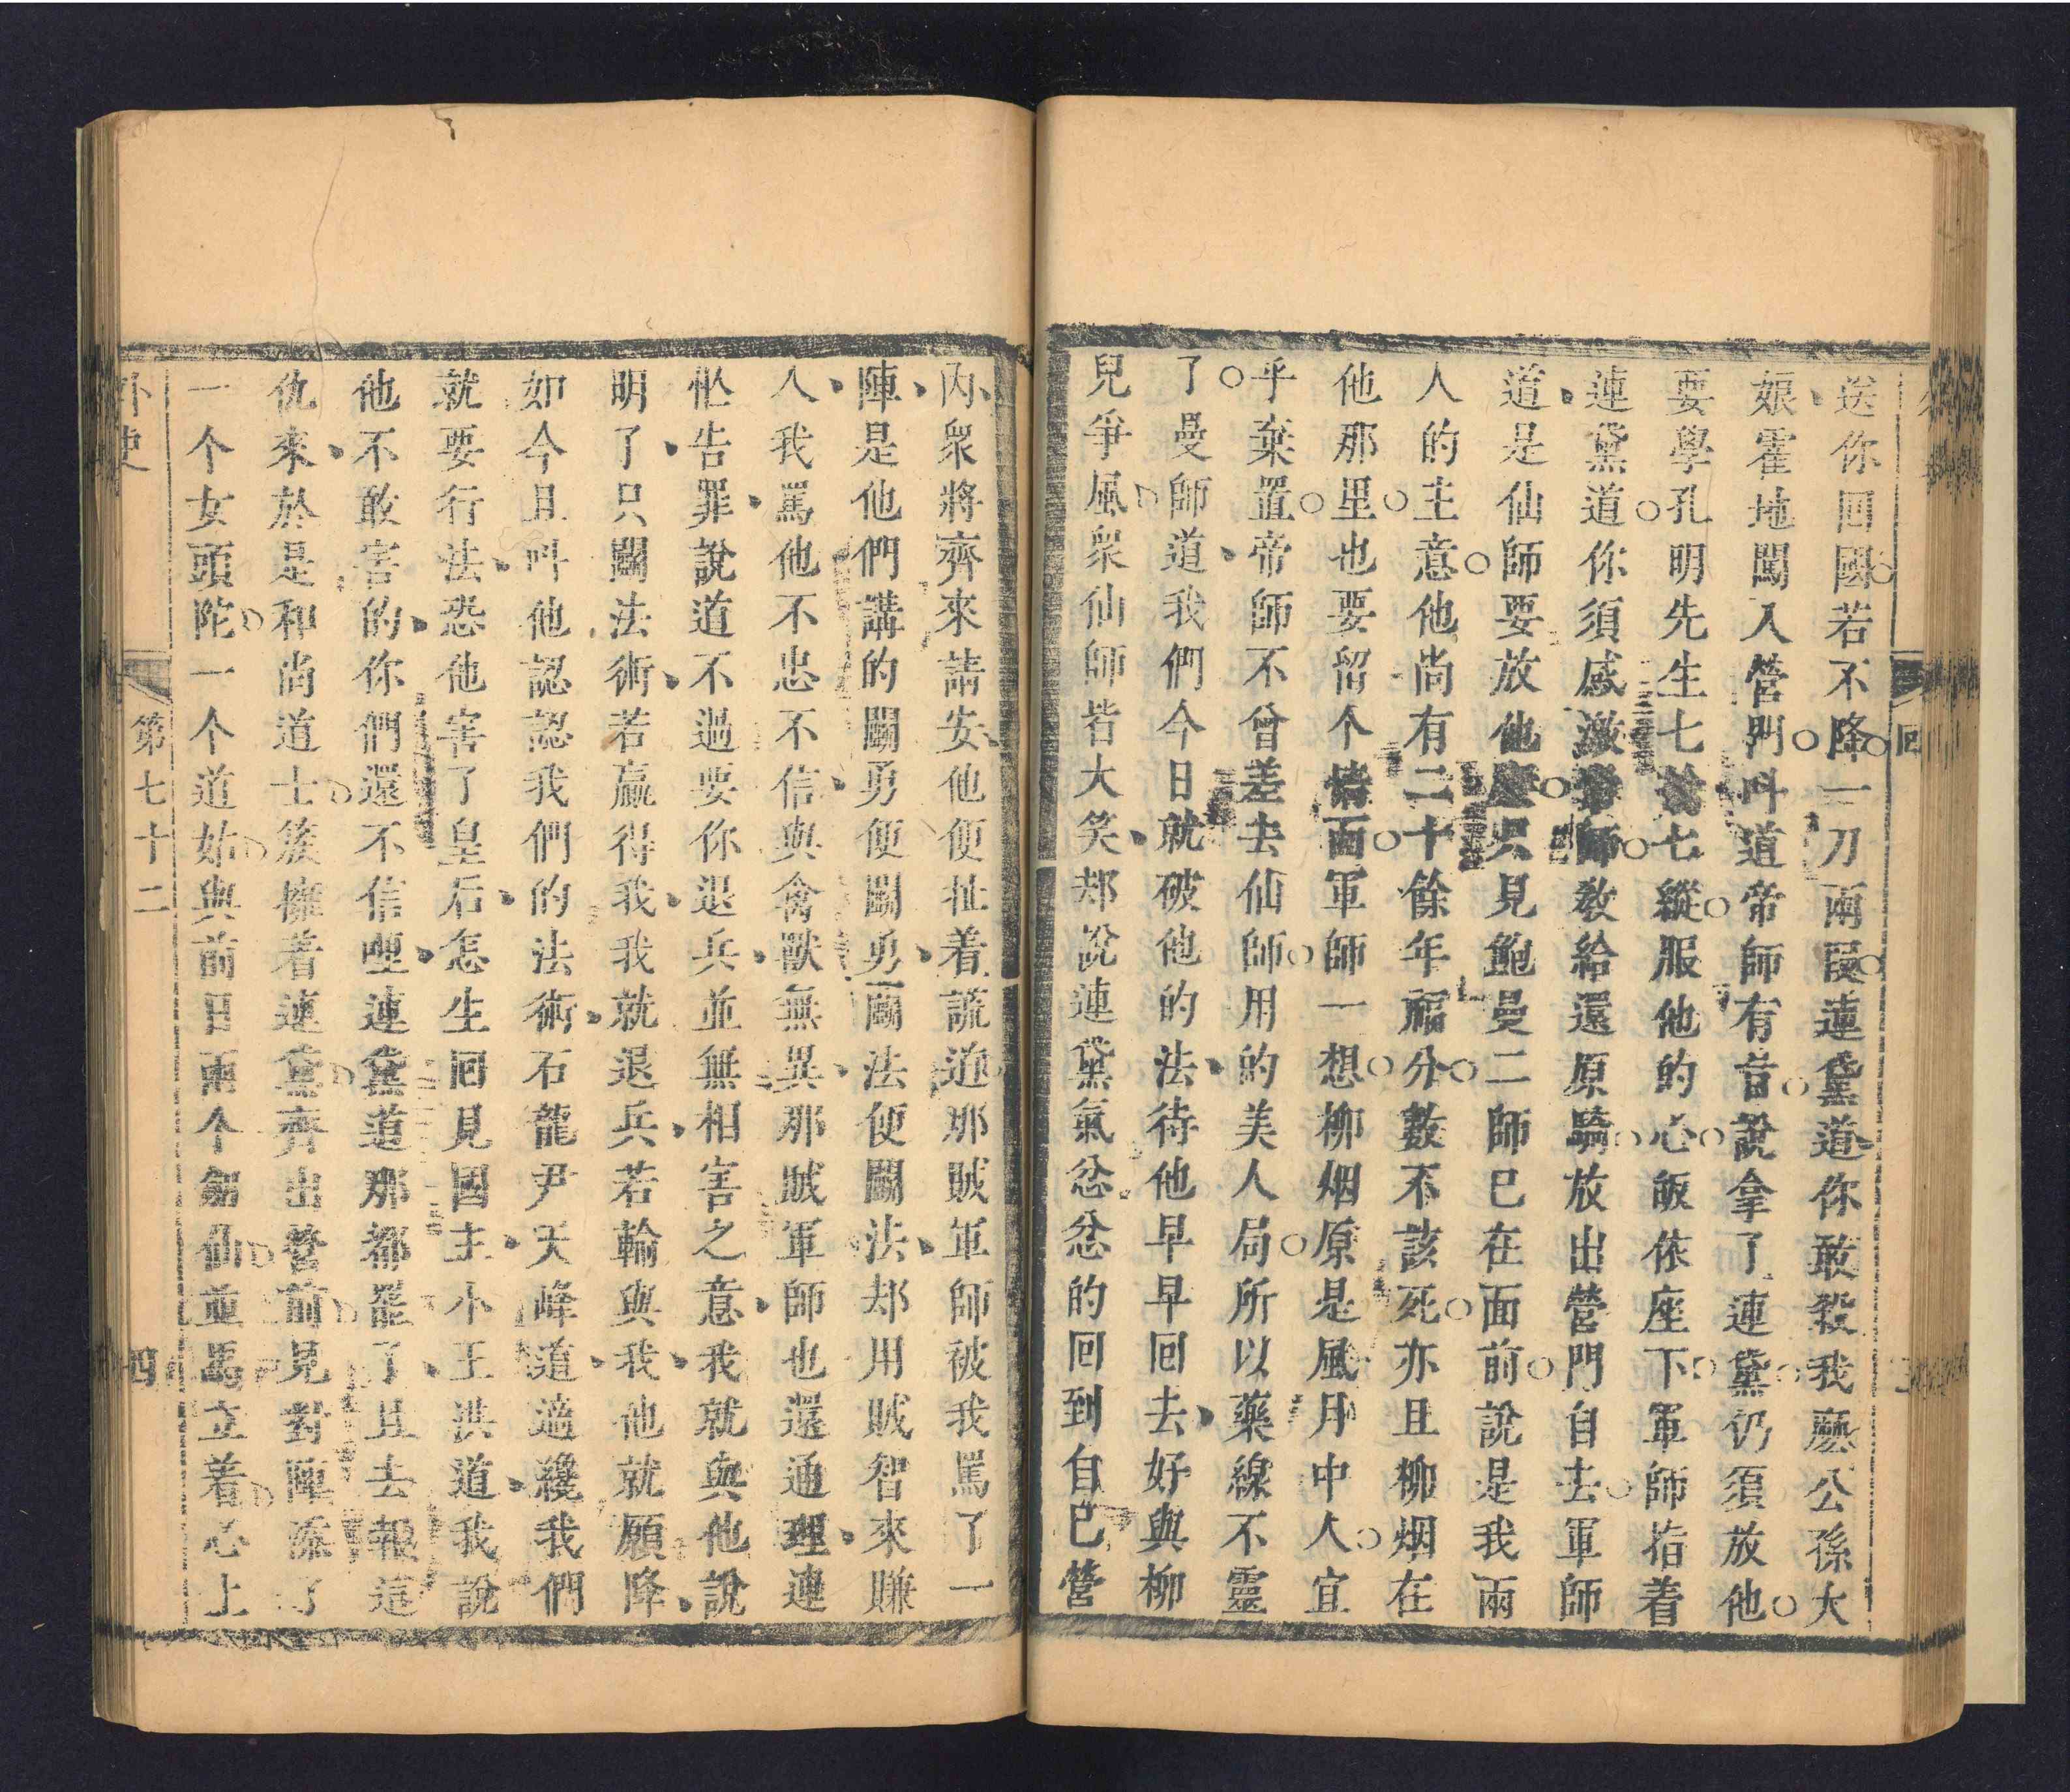 送你回國若不降一刀兩段連黛道你敢殺我麽公孫大
娘霍地闖入營門呌道帝師有旨說拿了連黛仍須放他
要學孔明先生七擒七縱服他的心皈依座下軍師指着
連黛道你須感激帝師敎給還原騎放出營門自去軍師
道是仙師要放他麽只見鮑曼二師已在面前說是我兩
人的主意他尚有二十餘年福分數不該死亦且柳烟在
他那里也要留个情面軍師一想柳烟原是風月中人宜
乎棄置帝師不曾差去仙師用的美人局所以藥線不靈
了曼師道我們今日就破他的法待他早早回去好與柳
兒爭風衆仙師皆大笑却說連黛氣忿忿的回到自已營
內衆將齊來請安他便扯着謊道那賊軍師被我罵了一
陣是他們講的鬬勇便鬬勇鬬法便鬬法却用賊智來賺
人我罵他不忠不信與禽獸無異那賊軍師也還通理連
忙告罪說道不過要你退兵並無相害之意我就與他說
明了只鬬法術若贏得我我就退兵若輸與我他就願降
如今且呌他認認我們的法術石龍尹天峰道適纔我們
就要行法恐他害了皇后怎生回見國主小王洪道我說
他不敢害的你們還不信哩連黛道那都罷了且去報這
仇來於是和尚道士簇擁着連黛齊出營前見對陣添了
一个女頭陀一个道姑與前日兩个劒仙並馬立着心上
外史
第七十二
四
回